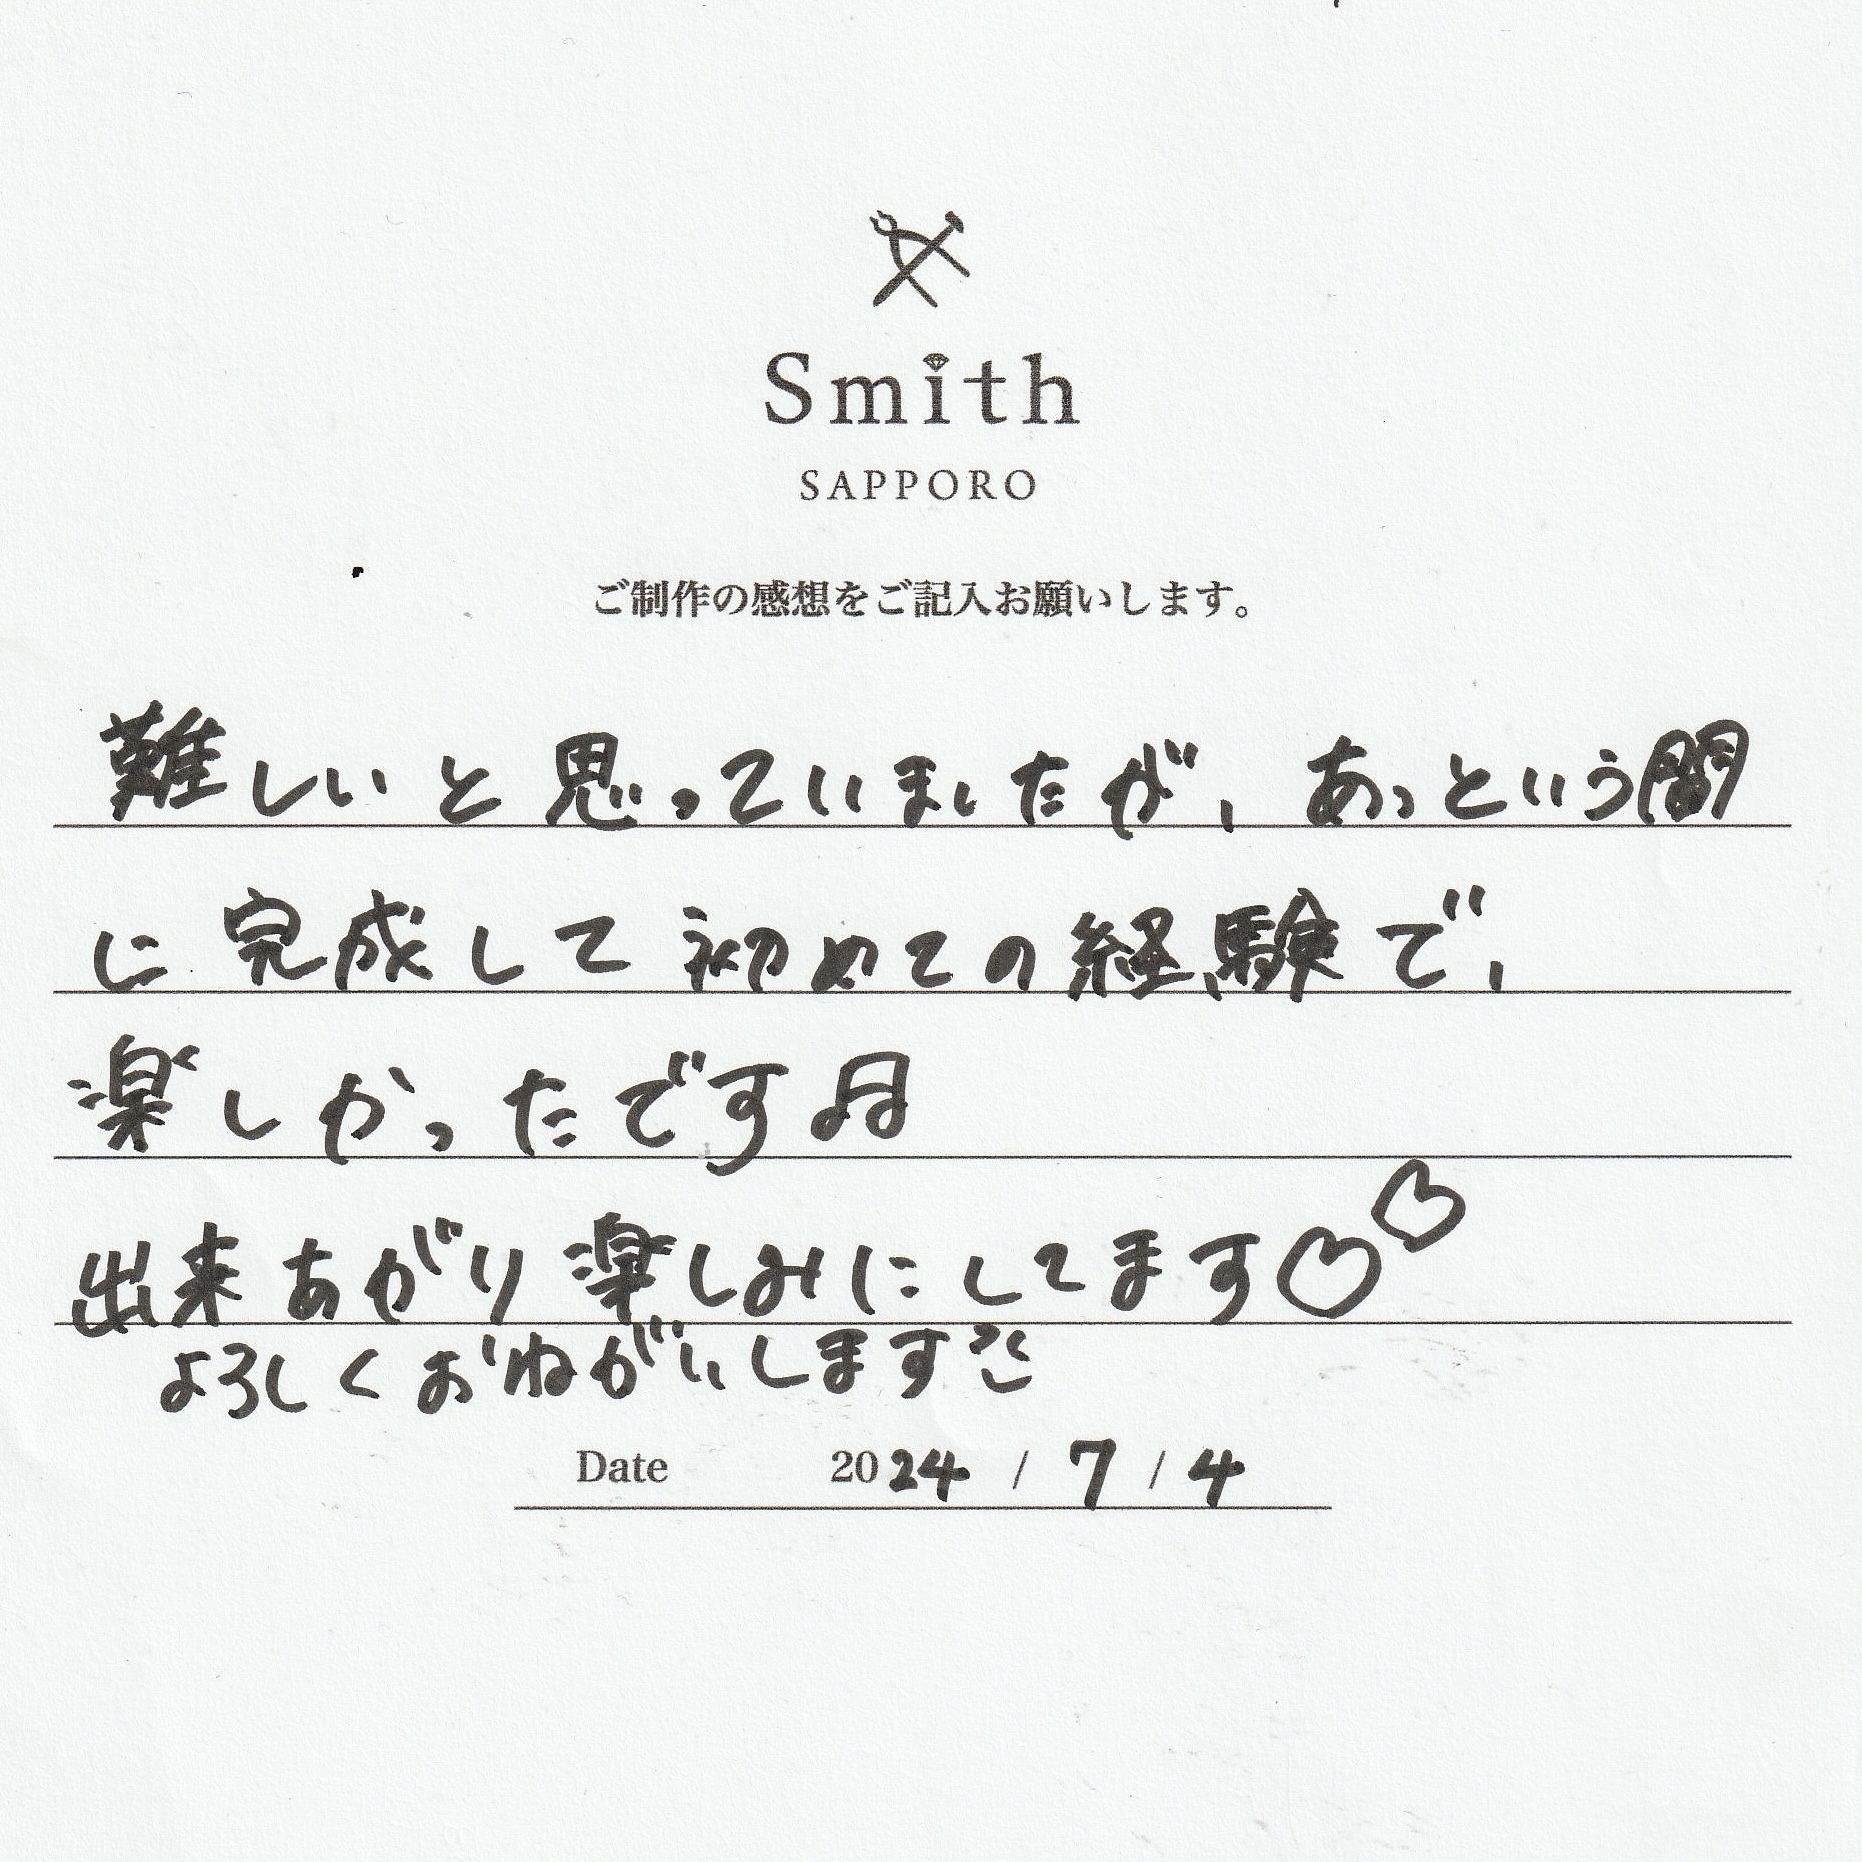 Smith
SAPPORO
ご制作の感想をご記入お願いします。
難しいと思っていましたが、あっという間
に完成して初めての経験で、
楽しかったです♫
出来あがり楽しみにしてます♡♡
よろしくおねがいします
Date 2024 / 7 / 4